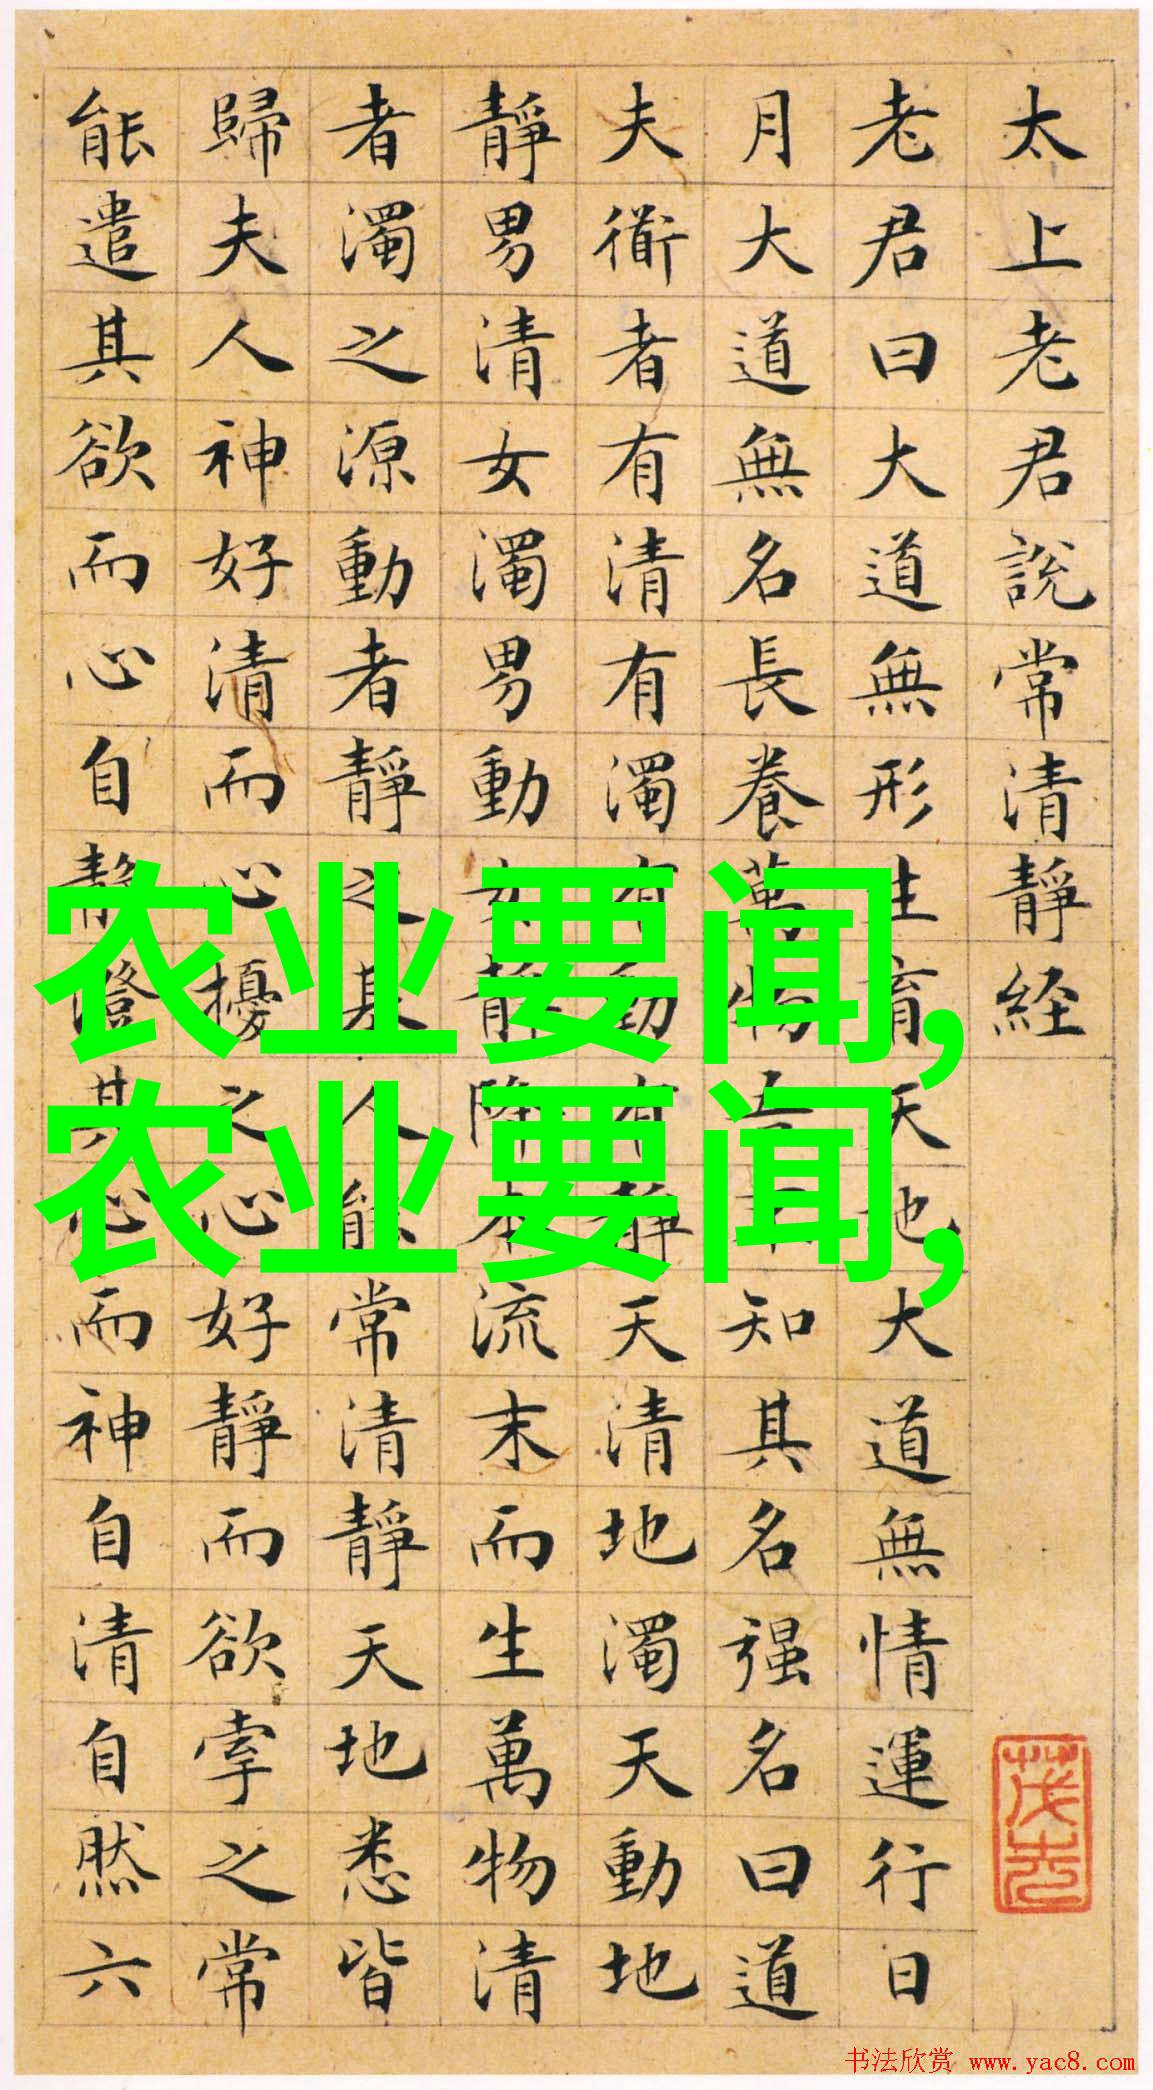 太上老君說常清靜経
老君曰大道無形生育天地大道無情運行日
月大道無名長養萬物吾不知其名强名曰道
夫衜者有清有濁有動有静天清地濁天動地
靜男清女濁男動女靜降本流末而生萬物清
者濁之源動者靜之基人能常清靜天地悉皆
歸夫人神好清而心擾之心好靜而欲牽之常
能遣其欲而心自靜澄其心而神自清自然六
农业要闻,
农业要闻,
书法欣赏 www.yac8.com